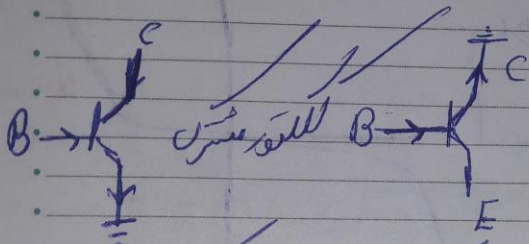 C
B
کلکتور مشترک
B
C
E